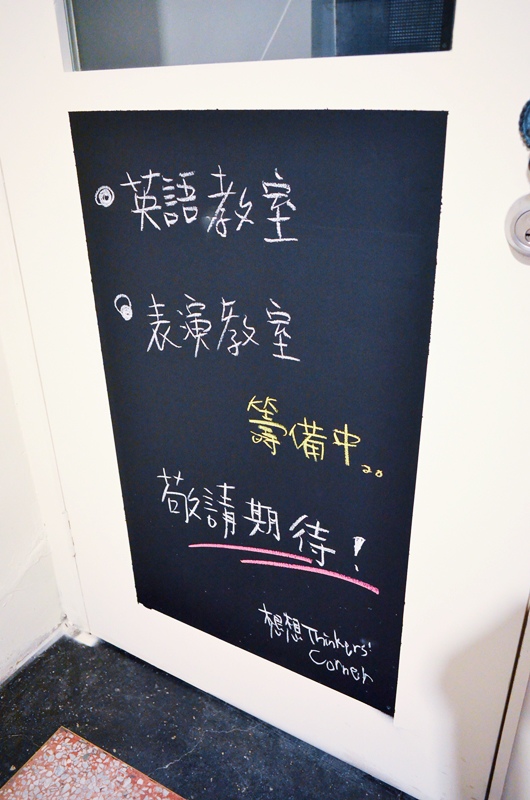 英語教室
表演教室
籌備中。。
敬請期待!
想想Thinkers'
Corner